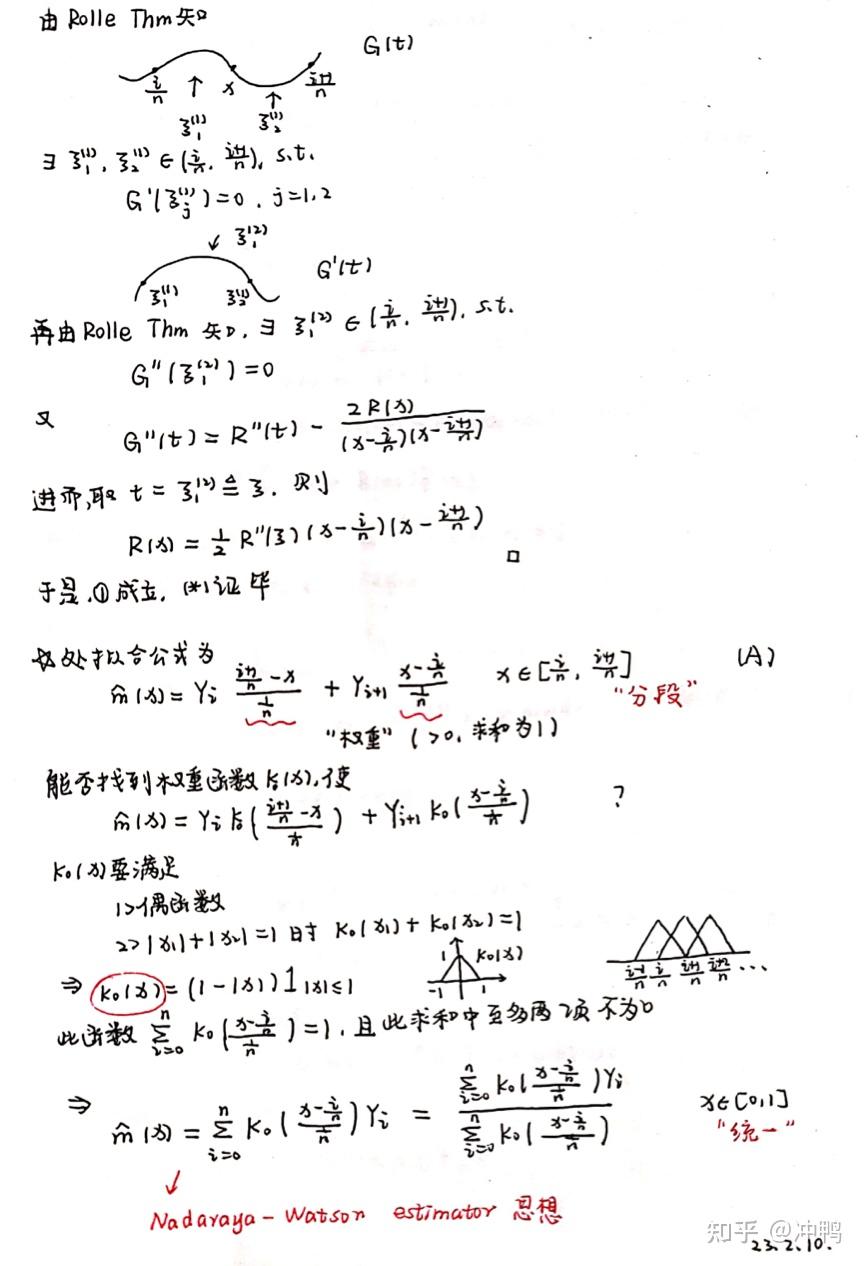 由 Rolle Thm 知
G(t)
i/n ↑ x ↑ (i+1)/n
ξ₁⁽¹⁾ ξ₂⁽¹⁾
∃ ξ₁⁽¹⁾, ξ₂⁽¹⁾ ∈ (i/n, (i+1)/n), s.t.
G'(ξⱼ⁽¹⁾) = 0, j=1,2
↙ ξ₁⁽²⁾
G'(t)
ξ₁⁽¹⁾ ξ₂⁽¹⁾
再由 Rolle Thm 知, ∃ ξ₁⁽²⁾ ∈ (i/n, (i+1)/n), s.t.
G''(ξ₁⁽²⁾) = 0
又
G''(t) = R''(t) - 2R(x)/((x-i/n)(x-(i+1)/n))
进而,取 t = ξ₁⁽²⁾ ≜ ξ, 则
R(x) = 1/2 R''(ξ)(x-i/n)(x-(i+1)/n)
□
于是,①成立, (*)证毕
处拟合公式为
m̂(x) = Yᵢ ((i+1)/n - x)/(1/n) + Yᵢ₊₁ (x - i/n)/(1/n) x∈[i/n, (i+1)/n] (A)
"分段"
"权重" (>0, 求和为1)
能否找到权重函数 k₀(x), 使
m̂(x) = Yᵢ k₀(((i+1)/n - x)/(1/n)) + Yᵢ₊₁ K₀((x - i/n)/(1/n)) ?
K₀(x)要满足
1>偶函数
2> |x₁|+|x₂|=1 时 K₀(x₁)+K₀(x₂)=1
⇒ K₀(x) = (1-|x|)1_{|x|≤1}
1 K₀(x)
-1 1
(i-1)/n i/n (i+1)/n (i+2)/n ...
此函数 ∑ᵢ₌₀ⁿ K₀((x-i/n)/(1/n)) = 1, 且此求和中至多两项不为0
⇒ m̂(x) = ∑ᵢ₌₀ⁿ K₀((x-i/n)/(1/n)) Yᵢ = ∑ᵢ₌₀ⁿ K₀((x-i/n)/(1/n))Yᵢ / ∑ᵢ₌₀ⁿ K₀((x-i/n)/(1/n)) x∈[0,1]
"统一"
↓
Nadaraya-Watson estimator 思想
知乎 @冲鸭
23.2.10.